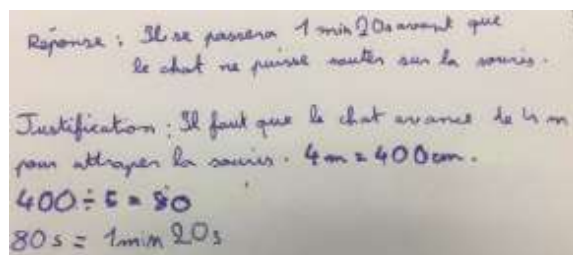 Réponse : Il se passera 1 min 20s avant que
le chat ne puisse sauter sur la souris.
Justification : Il faut que le chat avance de 4 m
pour attraper la souris. 4m = 400cm.
400 ÷ 5 = 80
80 s = 1min 20s